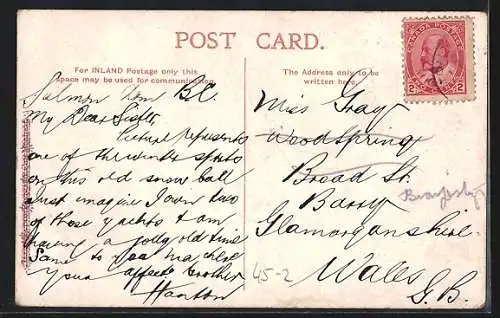 POST CARD.
For INLAND Postage only this
space may be used for communication.
The Address only to be
written here.
CANADA POSTAGE
2 2
Salmon Arm B.C.
My Dear Sister
Picture represents
one of the winter sports
on this old snow ball
Just imagine I own two
of those yachts & am
having a jolly old time
Same to you
Your affect brother
Miss Gray
Woodspring
Broad St.
Barry
Glamorganshire
Wales
G.B.
45-2